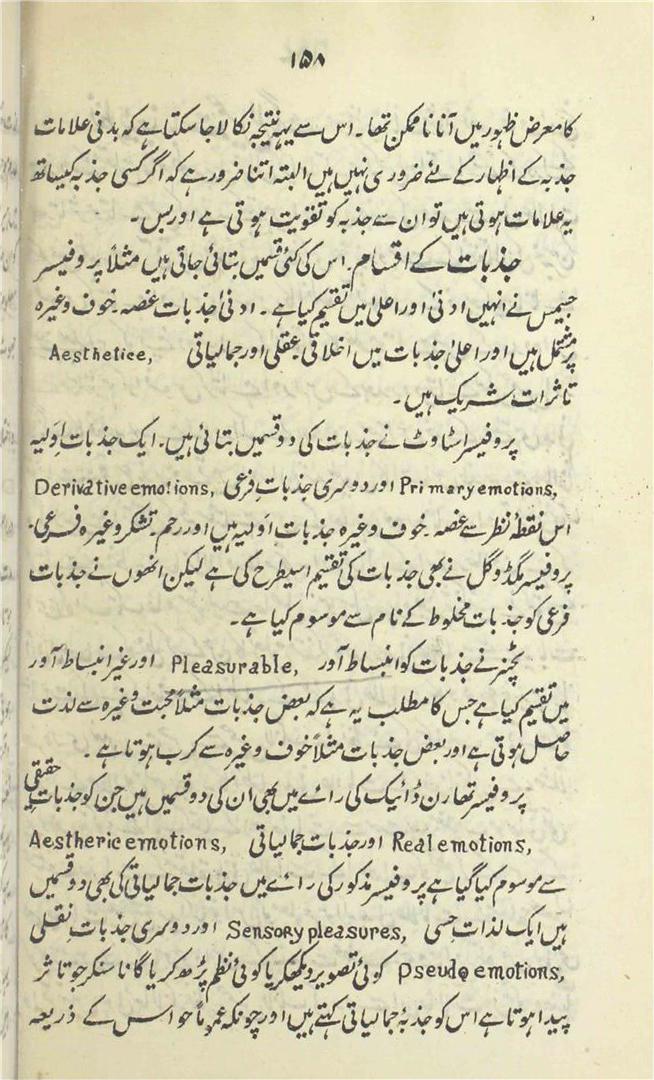 ۱۵۸
کا معرض ظہور میں آنا نا ممکن تھا۔ اس سے یہہ نتیجہ نکالا جا سکتا ہے کہ بدنی علامات
جذبہ کے اظہار کے لئے ضروری نہیں ہیں البتہ اتنا ضرور ہے کہ اگر کسی جذبہ کیساتھ
یہ علامات ہوتی ہیں تو ان سے جذبہ کو تقویت ہوتی ہے اور بس۔
جذبات کے اقسام۔ اس کی کئی قسمیں بتائی جاتی ہیں مثلاً پروفیسر
جیمس نے انہیں ادنیٰ اور اعلیٰ میں تقسیم کیا ہے۔ ادنیٰ جذبات غصہ۔ خوف وغیرہ
پر مشتمل ہیں اور اعلیٰ جذبات میں اخلاقی۔ عقلی اور جمالیاتی Aesthetice,
تاثرات شریک ہیں۔
پروفیسر اسٹاوٹ نے جذبات کی دو قسمیں بتائی ہیں۔ ایک جذبات اَولیہ
Primary emotions, اور دوسری جذباتِ فرعی Derivative emotions,
اس نقطۂ نظر سے غصہ۔ خوف وغیرہ جذباتِ اَولیہ ہیں اور رحم۔ تشکر وغیرہ فرعی۔
پروفیسر مگڈوگل نے بھی جذبات کی تقسیم اسیطرح کی ہے لیکن انھوں نے جذبات
فرعی کو جذبات مخلوط کے نام سے موسوم کیا ہے۔
ٹچنر نے جذبات کو انبساط آور Pleasurable, اور غیر انبساط آور
میں تقسیم کیا ہے جس کا مطلب یہ ہے کہ بعض جذبات مثلاً محبت وغیرہ سے لذت
حاصل ہوتی ہے اور بعض جذبات مثلاً خوف وغیرہ سے کرب ہوتا ہے۔
پروفیسر تھارن ڈائیک کی رائے میں بھی ان کی دو قسمیں ہیں جن کو جذبات حقیقی
Real emotions, اور جذبات جمالیاتی Aestheric emotions,
سے موسوم کیا گیا ہے پروفیسر مذکور کی رائے میں جذبات جمالیاتی کی بھی دو قسمیں
ہیں ایک لذات حِسی Sensory pleasures, اور دوسری جذباتِ نقلی
Pseudo emotions, کوئی تصویر دیکھکر یا کوئی نظم پڑھ کر یا گانا سنکر جو تاثر
پیدا ہوتا ہے اس کو جذبۂ جمالیاتی کہتے ہیں اور چونکہ عموماً حواس کے ذریعہ